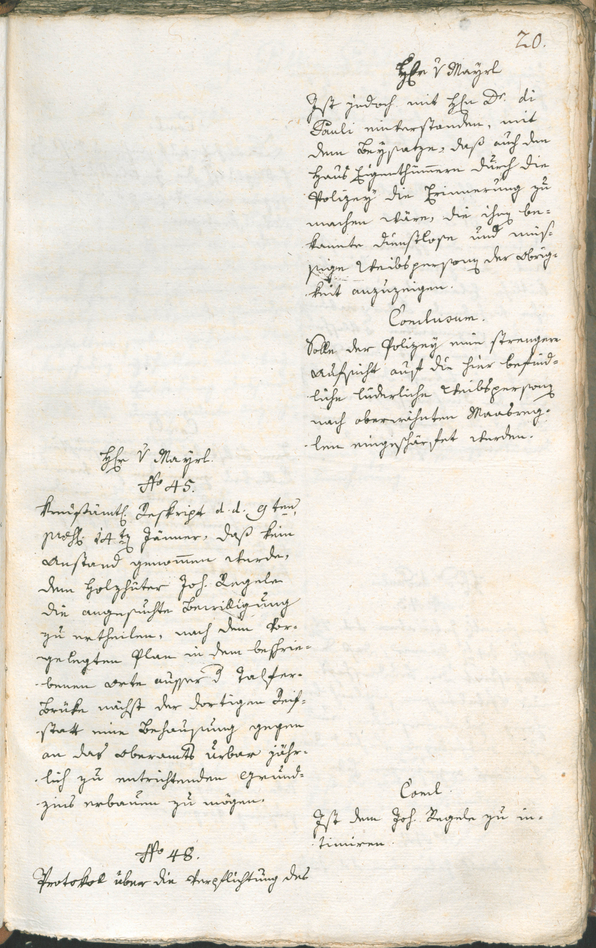 20.
Hr v Mayrl
Ist jedoch mit Hrn Dr. di
Pauli einverstanden, mit
dem Beysatze, daß auch den
Haus Eigenthümern durch die
Polizey die Erinnerung zu
machen wäre, die ihnen be-
kannte dienstlose und müs-
sige Weibspersonen der Obrig-
keit anzuzeigen.
Conclusum.
Solle der Polizey eine strengere
Aufsicht auf die hier befind-
liche liederliche Weibspersonen
nach oberwähnten Maasreg-
len eingeschärfet werden.
Hr v Mayrl
No 45.
Kreisämtl. Reskript d. d. 9ten,
14ten Jänner, daß kein
Anstand genommen werde,
dem Holzhüter Joh. Regele
die angesuchte Bewilligung
zu ertheilen, nach dem vor-
gelegten Plan in dem beschrie-
benen Orte ausser der Talfer-
Brüke nächst der dortigen Reif-
statt eine Behausung gegen
an das Oberamts Urbar jähr-
lich zu entrichtenden Grund-
zins erbauen zu mögen.
Concl.
Ist dem Joh. Regele zu in-
timiren.
No 46.
Protokol über die Verpflichtung des